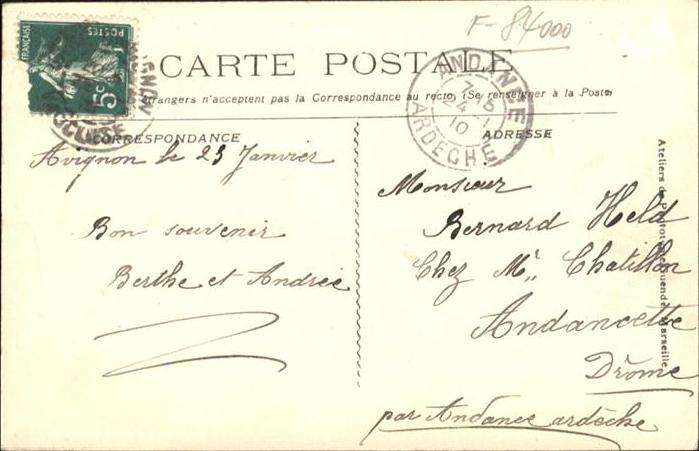 F-84000
FRANÇAISE
POSTES
5c
AVIGNON
VAUCLUSE
CARTE POSTALE
étrangers n'acceptent pas la Correspondance au recto, (Se renseigner à la Poste)
ANDANCE
7 B
24 - 1
10
ARDECHE
CORRESPONDANCE
Avignon le 23 Janvier
Bon souvenir
Berthe et Andrée
ADRESSE
Monsieur
Bernard Held
Chez Mr. Chatillon
Andancette
Drôme
par Andance ardèche
Ateliers de Marseille